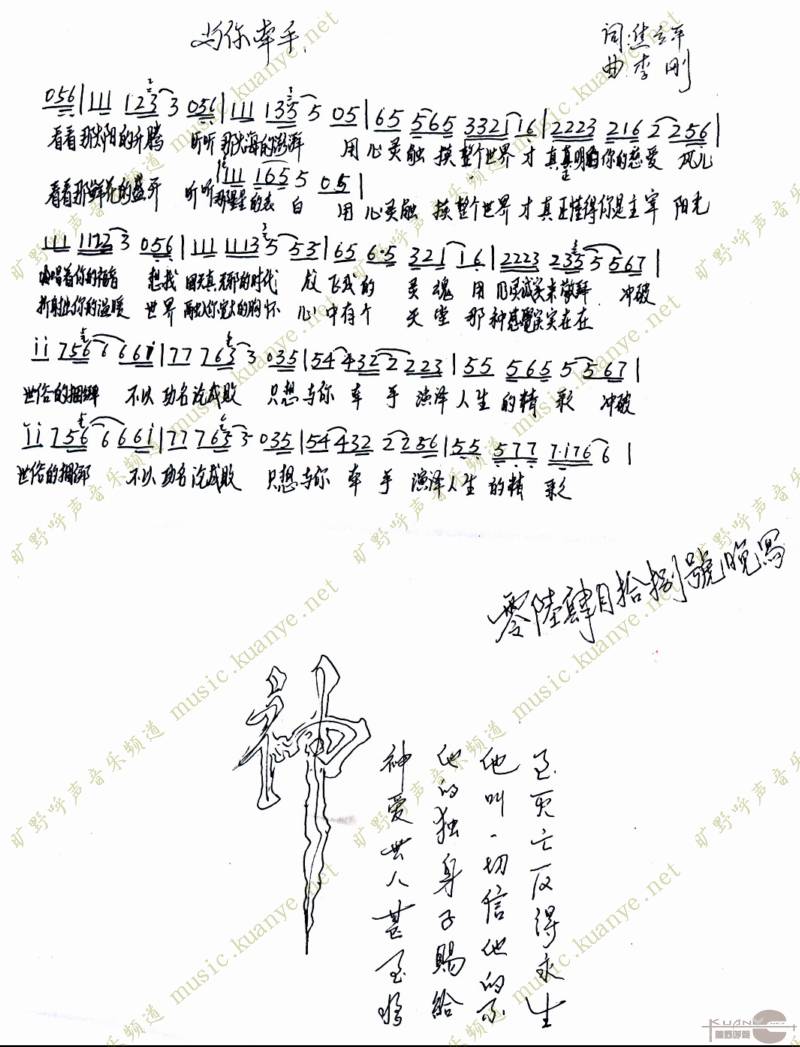 与你牵手
词:焦立平
曲 李刚
056 | 111 1233 056 | 111 1355 05 | 65 565 332116 | 2223 2162 256 |
看看那太阳的升腾 听听那大海的澎湃 用心灵触摸整个世界才真真明白你的慈爱 风儿
111 1655 05 |
看看那鲜花的盛开 听听那星星的表白 用心灵触摸整个世界才真正懂得你是主宰 阳光
111 11223 056 | 111 11135 535 | 65 65 321 16 | 2223 2355 5567 |
吟唱着你的福音 想我 天真无邪的时代 放飞我的灵魂 用 来敬拜 冲破
折射出你的温暖 世界融入你宽大的胸怀 心中有个天堂 那种感觉实实在在
ii 756 6 66i | 77 763 3 035 | 54 432 2 223 | 55 565 5 567 |
世俗的捆绑 不以功名论成败 只想与你牵手演泽人生的精彩 冲破
ii 756 6 66i | 77 7655 035 | 54 432 2 256 | 55 577 7·176 6 |
世俗的捆绑 不以功名论成败 只想与你牵手演泽人生的精彩
零陆肆月拾捌號晚寫
神
神爱世人甚至将
他的独身子赐给
他叫一切信他的不
至灭亡反得永生
旷野呼声音乐频道 music.kuanye.net
KUANYE
旷野呼声